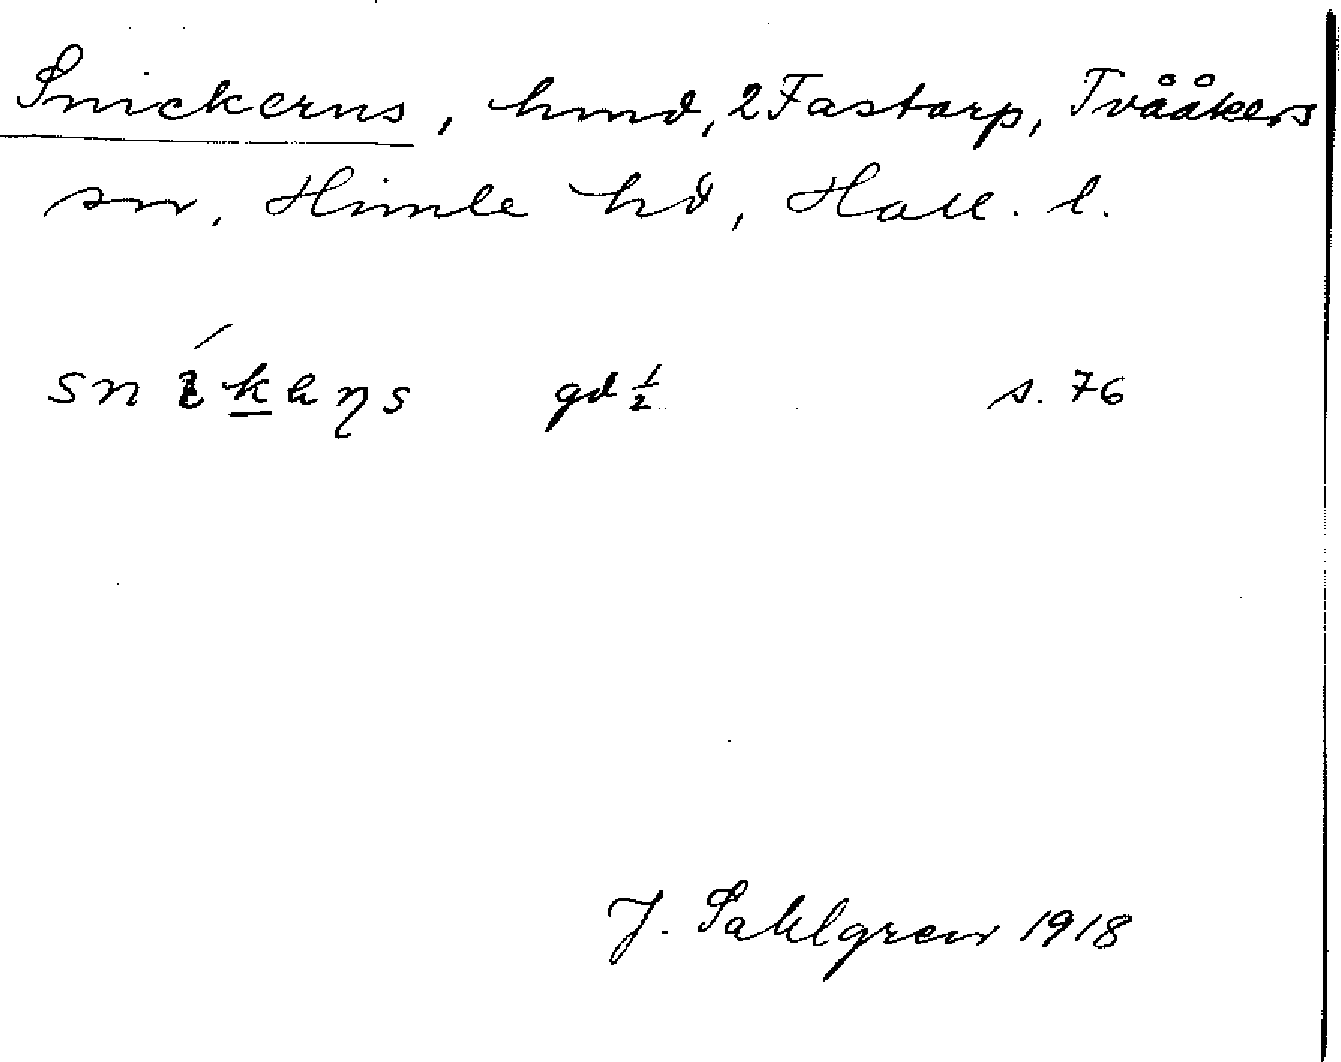 Snickerns, hmd, 2 Fastarp, Tvååkers
sn, Himle hd, Hall. l.
sníkaɳs gd ½ s. 76
J. Sahlgren 1918